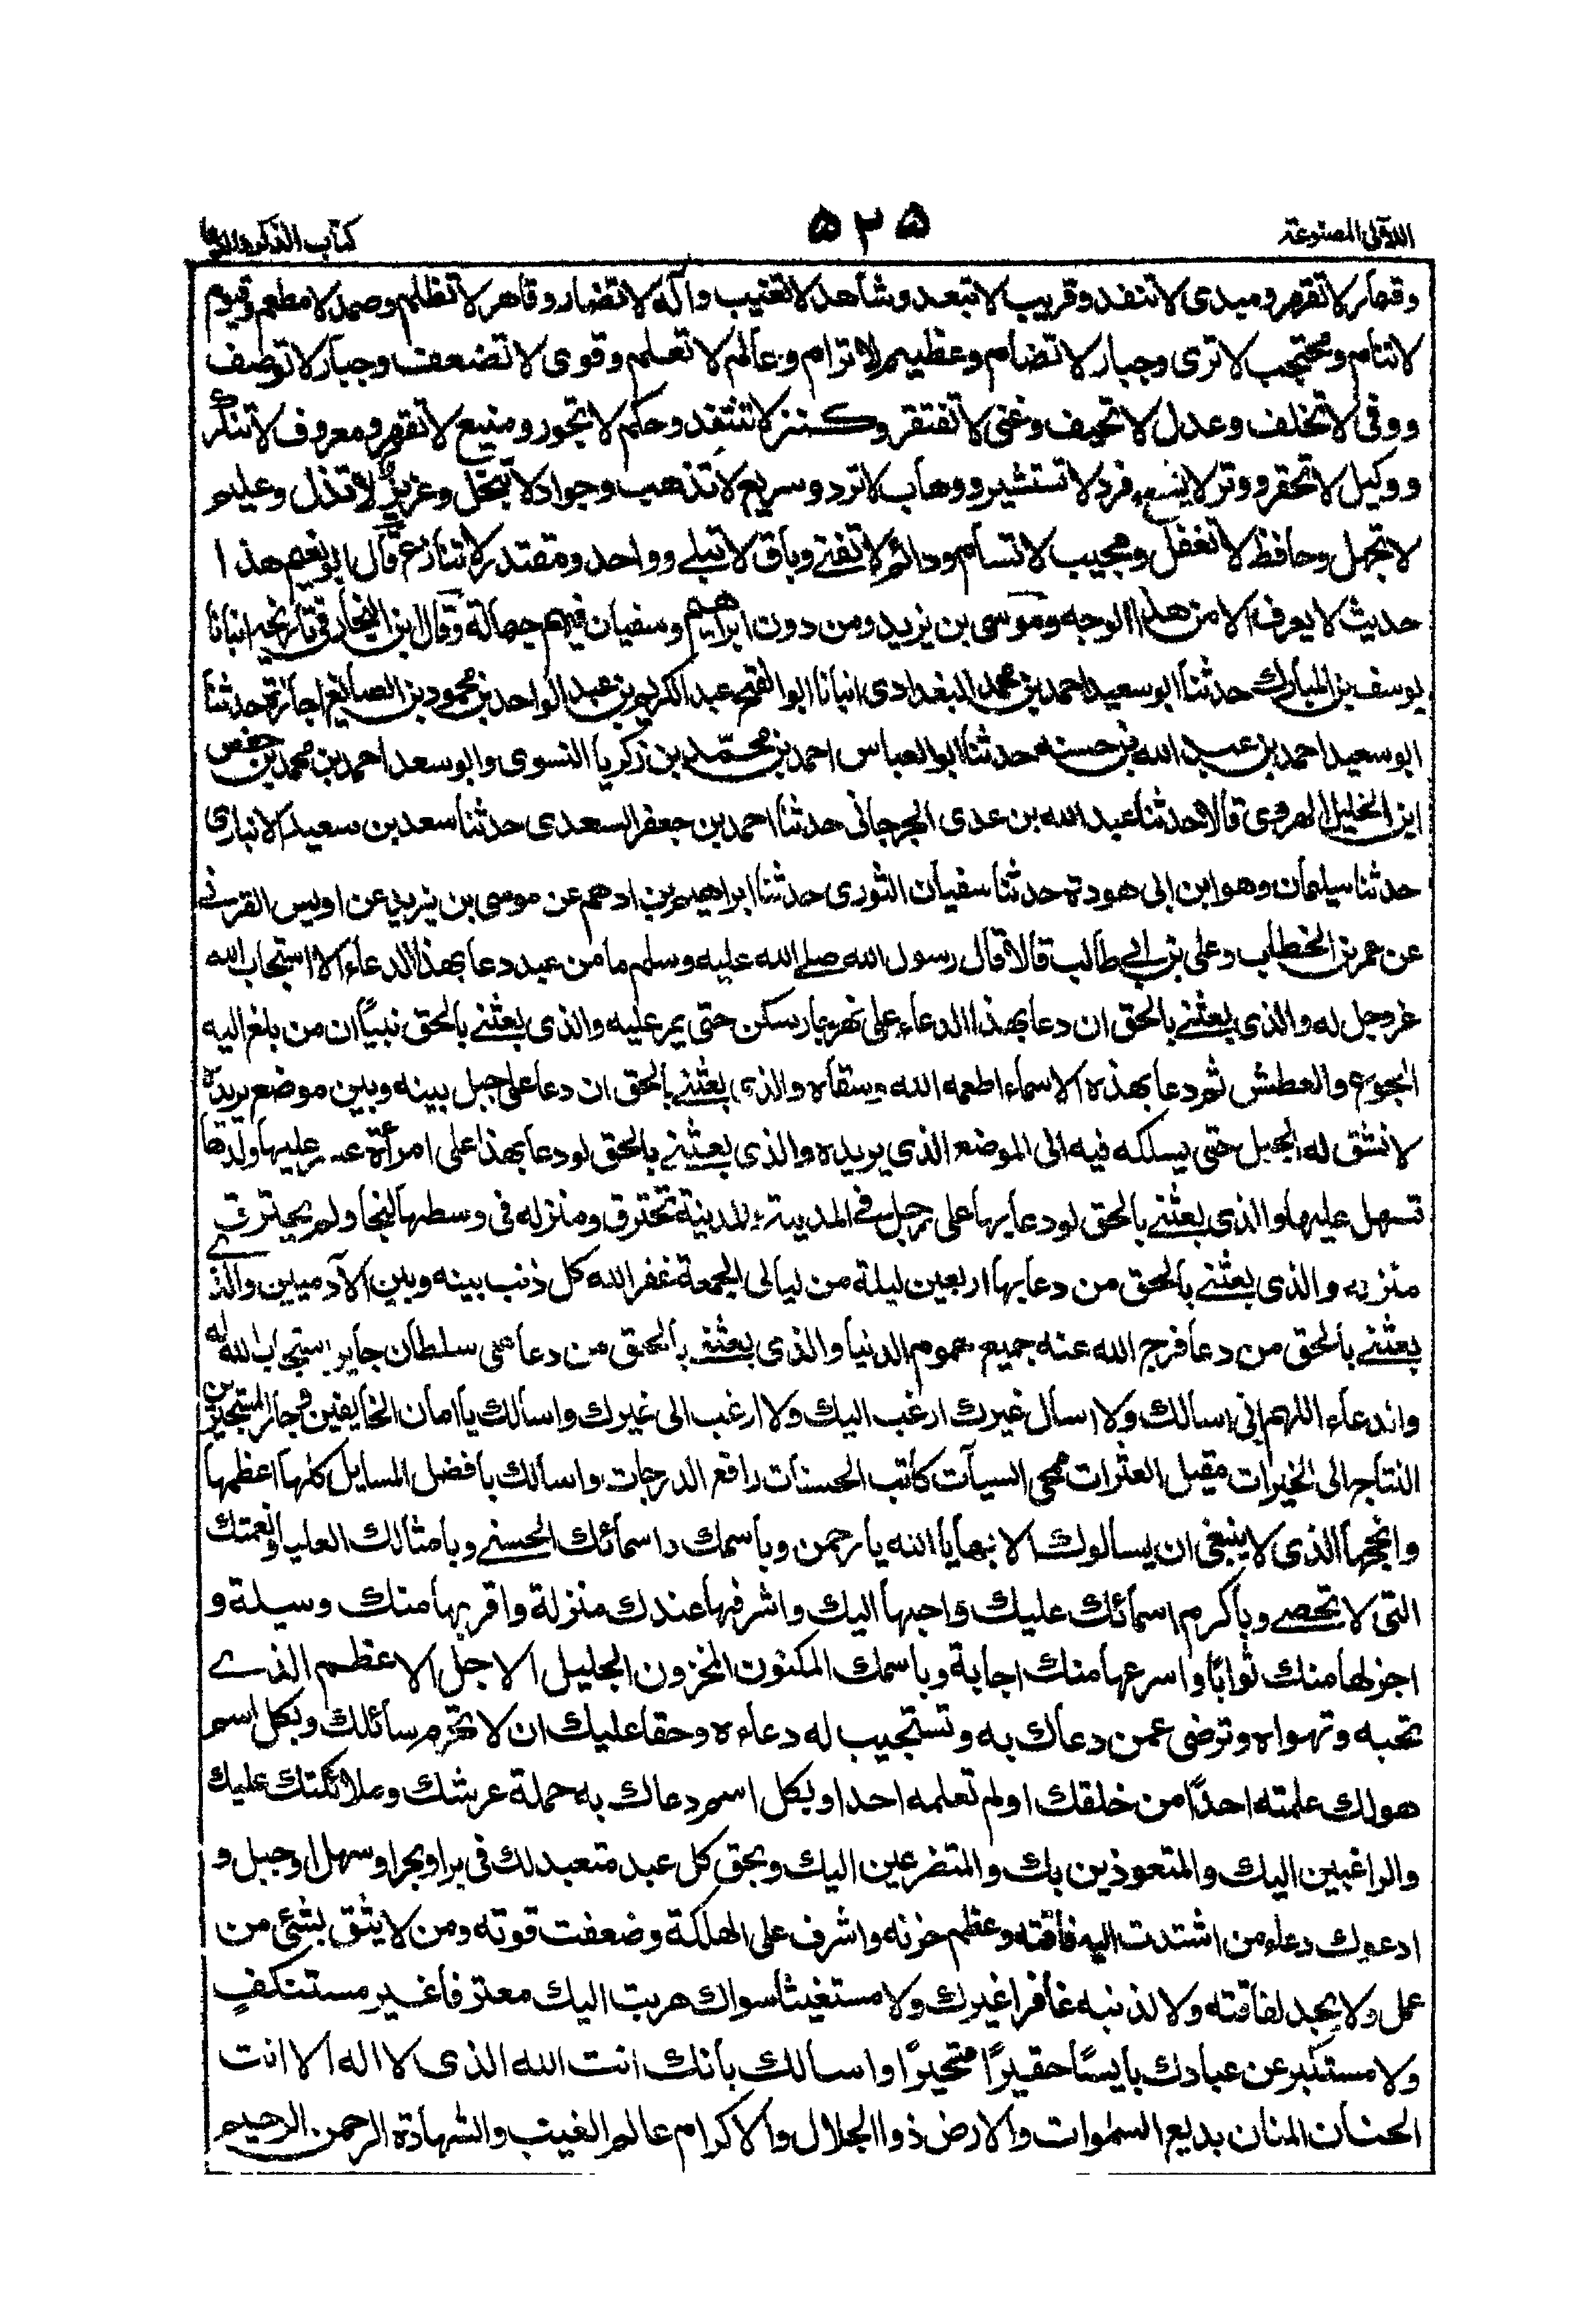 اللآلى المصنوعة
۵۲۵
كتاب الذكر والدعا
وقهار لا تقهر ومبدى لا تنفد وقريب لا تبعد وشاهد لا تغيب واله لا تضار وقاهر لا تظلم وصمد لا مطعم وقيوم
لا تنام ومحتجب لا ترى وجبار لا تضام وعظيم لا ترام وعالم لا تعلم وقوى لا تضعف وجبار لا توصف
ووفى لا تخلف وعدل لا تحيف وغنى لا تفتقر وكنز لا تنفد وحكم لا تجور ومنيع لا تقهر ومعروف لا تنكر
ووكيل لا تحقر ووتر لا فرد لا تستشير ووهاب لا ترد وسريع لا تذهب وجواد لا تبخل وعزيز لا تذل وعليم
لا تجهل وحافظ لا تغفل ومجيب لا تسأم ودائم لا تفنے وباق لا تبلے وواحد ومقتدر لا تنازع قال ابو نعيم هذا
حديث لا يعرف الا من هذا الوجه وموسى بن يزيد ومن دون ابراهيم وسفيان فيهم جهالة وقال بن النجار فى تاريخه انبانا
يوسف بن المبارك حدثنا ابو سعيد احمد بن محمد البغدادى انبانا ابو الفتح عبد الكريم بن عبد الواحد بن محمود بن الصائغ اجازة حدثنا
ابو سعيد احمد بن عبد الله بن حسنه حدثنا ابو العباس احمد بن محمد بن زكريا النسوى وابو سعد احمد بن محمد بن حفص
ابن الخليل الهروى قالا حدثنا عبد الله بن عدى الجرجانى حدثنا احمد بن جعفر السعدى حدثنا سعد بن سعيد الانبارى
حدثنا سليمان وهو ابن ابى هودة حدثنا سفيان الثورى حدثنا ابراهيم بن ادهم عن موسى بن يزيد عن اويس القرنے
عن عمر بن الخطاب وعلى بن ابے طالب قالا قال رسول الله صلے الله عليه وسلم ما من عبد دعا بهذا الدعاء الا استجاب الله
عز وجل له والذى بعثنے بالحق ان دعا بهذا الدعاء على نهر جار سكن حتى يمر عليه والذى بعثنے بالحق نبيًا ان من بلغ اليه
الجوع والعطش ثم دعا بهذه الاسماء اطعمه الله وسقاه والذى بعثنے بالحق ان دعا على جبل بينه وبين موضع يريده
لانشق له الجبل حتى يسلكه فيه الى الموضع الذى يريده والذى بعثنے بالحق لو دعا بهذا على امرأة عسر عليها ولدها
تسهل عليها والذى بعثنے بالحق لو دعا بها على رجل فے المدينة والمدينة تحترق ومنزله فى وسطها لنجا ولم يحترق
منزله والذى بعثنے بالحق من دعا بها اربعين ليلة من ليالى الجمعة غفر الله كل ذنب بينه وبين الآدميين والذے
بعثنے بالحق من دعا فرج الله عنه جميع هموم الدنيا والذى بعثنے بالحق من دعا على سلطان جاير استجاب الله له
والدعاء اللهم انى اسالك ولا اسال غيرك ارغب اليك ولا ارغب الى غيرك واسالك يا امان الخايفين وجار المستجيرين
الفتاح الى الخيرات مقيل العثرات محى السيآت كاتب الحسنات رافع الدرجات واسالك بافضل المسايل كلها اعظمها
وانجحها الذى لا ينبغى ان يسالوك الا بها يا الله يا رحمن وباسمك واسمائك الحسنے وبامثالك العليا ونعمتك
التى لا تحصے وباكرم اسمائك عليك واحبها اليك واشرفها عندك منزلة واقربها منك وسيلة و
اجزلها منك ثوابًا واسرعها منك اجابة وباسمك المكنون المخزون الجليل الاجل الاعظم الذے
تحبه وتهواه وترضى عمن دعاك به وتستجيب له دعاءه وحقا عليك ان لا تحرم سائلك وبكل اسم
هو لك علمته احدًا من خلقك او لم تعلمه احدا وبكل اسم دعاك به حملة عرشك وملائكتك عليك
والراغبين اليك والمتعوذين بك والمتضرعين اليك وبحق كل عبد متعبد لك فى بر او بحر او سهل او جبل و
ادعوك دعاء من اشتدت اليه فاقته وعظم حزنه واشرف على الهلكة وضعفت قوته ومن لا يثق بشئ من
عمل ولا يجد لفاقته ولا لذنبه غافرا غيرك ولا مستغيثا سواك هربت اليك معترفا غير مستنكفٍ
ولا مستكبر عن عبادك بايسًا حقيرًا متحيرًا واسالك بانك انت الله الذى لا اله الا انت
الحنان المنان بديع السموات والارض ذو الجلال والاكرام عالم الغيب والشهادة الرحمن الرحيم